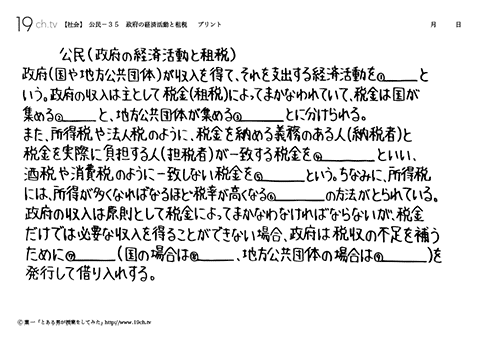 19ch.tv 【社会】 公民-35 政府の経済活動と租税 プリント 月 日
公民(政府の経済活動と租税)
政府(国や地方公共団体)が収入を得て、それを支出する経済活動を①______と
いう。政府の収入は主として税金(租税)によってまかなわれていて、税金は国が
集める②______と、地方公共団体が集める③______とに分けられる。
また、所得税や法人税のように、税金を納める義務のある人(納税者)と
税金を実際に負担する人(担税者)が一致する税金を④______といい、
酒税や消費税のように一致しない税金を⑤______という。ちなみに、所得税
には、所得が多くなればなるほど税率が高くなる⑥______の方法がとられている。
政府の収入は原則として税金によってまかなわなければならないが、税金
だけでは必要な収入を得ることができない場合、政府は税収の不足を補う
ために⑦______(国の場合は⑧______、地方公共団体の場合は⑨______)を
発行して借り入れする。
©葉一「とある男が授業をしてみた」http://www.19ch.tv